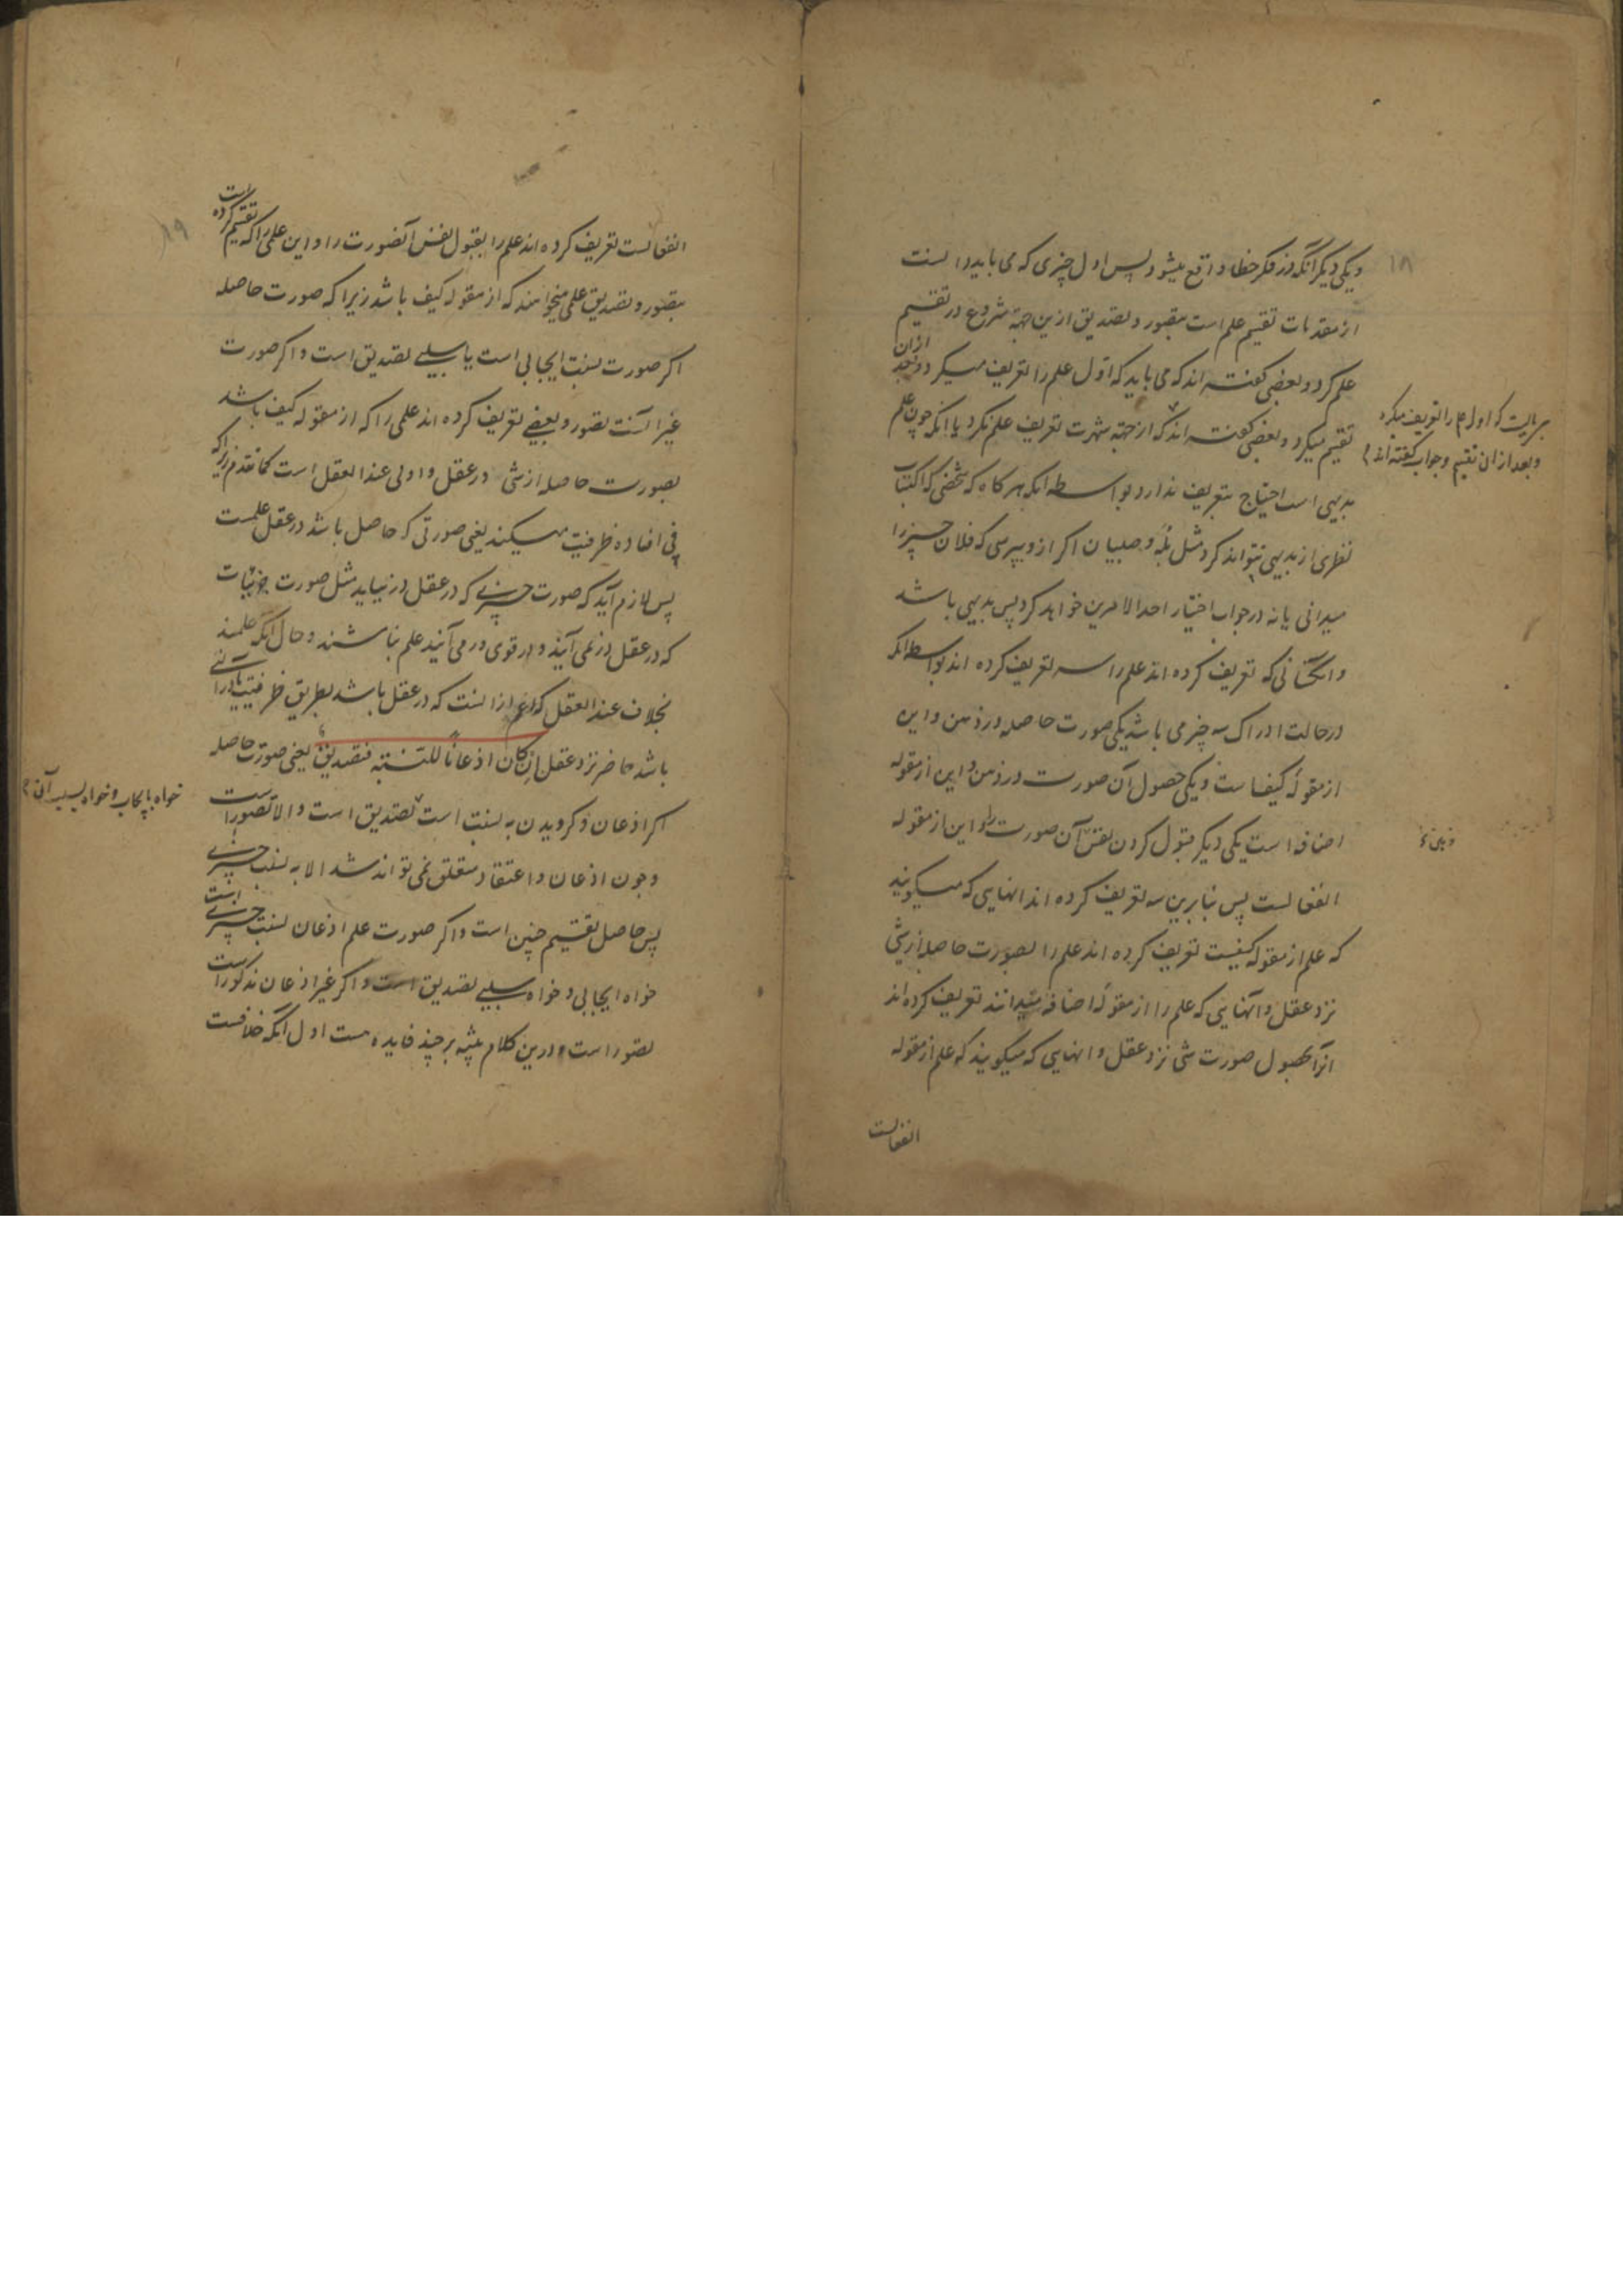 ۱۸
و یکی دیگر آنکه در فکر خطا واقع میشود پس اول چیزی که می باید دانست
از مقدمات تقسیم علم است بتصور و تصدیق ازین جهة شروع در تقسیم
علم کرد و بعضی گفته اند که می باید که اول علم را تعریف میکرد و بعد ازان
تقسیم میکرد و بعضی گفته اند که از جهة شهرت تعریف علم نکرد یا آنکه چون علم
بدیهی است احتیاج بتعریف ندارد بواسطه آنکه هر کاه که شخصی که اکتساب
نظری از بدیهی نتواند کرد مثل بله و صبیان اکر ازو بپرسی که فلان چیز را
میدانی یا نه در جواب اختیار احد الامرین خواهد کرد پس بدیهی باشد
و انکسانی که تعریف کرده اند علم را سه تعریف کرده اند بواسطه آنکه
در حالت ادراک سه چیز می باشد یکی صورت حاصله در ذهن و این
از مقوله کیف است و یکی حصول آن صورت در ذهن و این از مقوله
اضافه است یکی دیکر قبول کردن نفس آن صورت را و این از مقوله
انفعالست پس بنابرین سه تعریف کرده اند انهایی که میکویند
که علم از مقوله کیفیست تعریف کرده اند علم را بصورت حاصله از شی
نزد عقل و آنهایی که علم را از مقوله اضافه میدانند تعریف کرده اند
انرا بحصول صورت شی نزد عقل و انهایی که میکویند که علم از مقوله
انفعالست
که اول علم را تعریف میکرد
و بعد ازان تقسیم و جواب گفته اند
۱۹
انفعالست تعریف کرده اند علم را بقبول نفس آنصورت را و این علمی را که تقسیم کرده است
بتصور و تصدیق علمی میخواهند که از مقوله کیف باشد زیرا که صورت حاصله
اکر صورت نسبت ایجابی است یا سلبی تصدیق است و اکر صورت
غیر آنست تصور و بعضی تعریف کرده اند علمی را که از مقوله کیف باشد
بصورت حاصله از شی در عقل و اولی عند العقل است کما تقدم زیرا که
فی افاده ظرفیت میکند یعنی صورتی که حاصل باشد در عقل علمست
پس لازم آید که صورت چیزی که در عقل در نیاید مثل صورت جزئیات
که در عقل در نمی آیند و در قوی در می آیند علم نباشند و حال آنکه علمند
بخلاف عند العقل که اعم ازانست که در عقل باشد بطریق ظرفیت یا در آلتی
باشد حاضر نزد عقل ان کان اذعانا للنسبة فتصدیق یعنی صورت حاصله
اکر اذعان و کرویدن به نسبت است تصدیق است و الا تصور است
و چون اذعان و اعتقاد متعلق نمی تواند شد الا به نسبت چیزی
پس حاصل تقسیم چنین است و اکر صورت علم اذعان نسبت چیزی است
خواه ایجابی و خواه سلبی تصدیق است و اکر غیر اذعان مذکور است
تصور است و درین کلام تنبیه بر چند فایده هست اول آنکه خلافست
خواه بایجاب و خواه بسلب آن